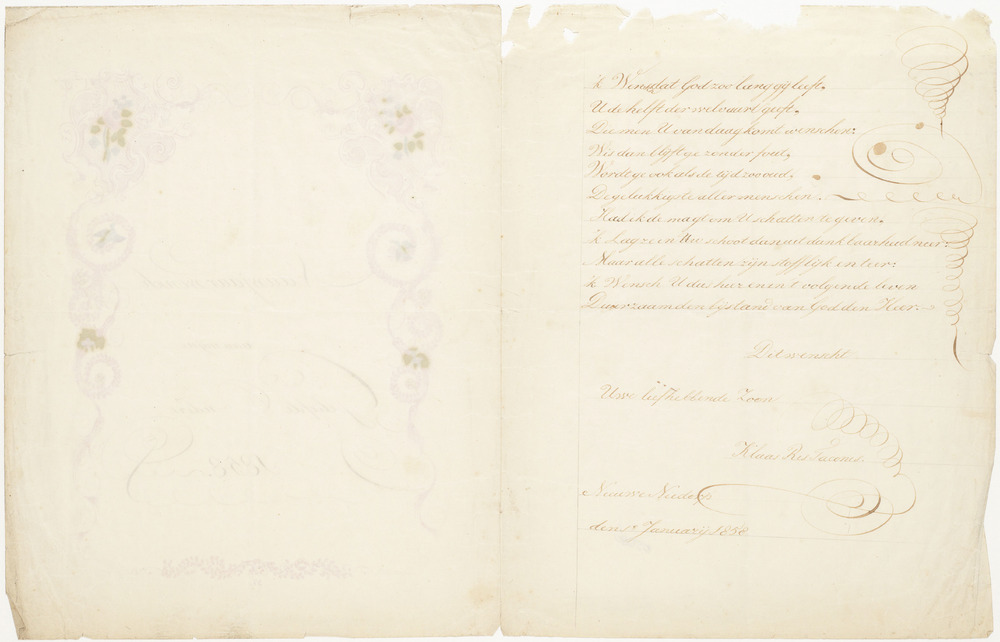 'k Wensch dat God zoo lang gij leeft.
U de helft der welvaart geeft.
Die men U van daag komt wenschen:
Wis dan blijft ge zonder fout,
Wordt ge ook als de tijd zoo oud.
De gelukkigste aller menschen.
Had ik de magt om U schatten te geven.
'k Lag ze in Uw schoot dan uit dankbaarheid neer:
Maar alle schatten zijn stofflijk en teer:
'k Wensch U dus hier en in 't volgende leven
Duurzaam den bijstand van God den Heer.
Dit wenscht
Uwe liefhebbende Zoon
Klaas Res
Nieuwe Niedorp
den 1e Januarij 1858
1858